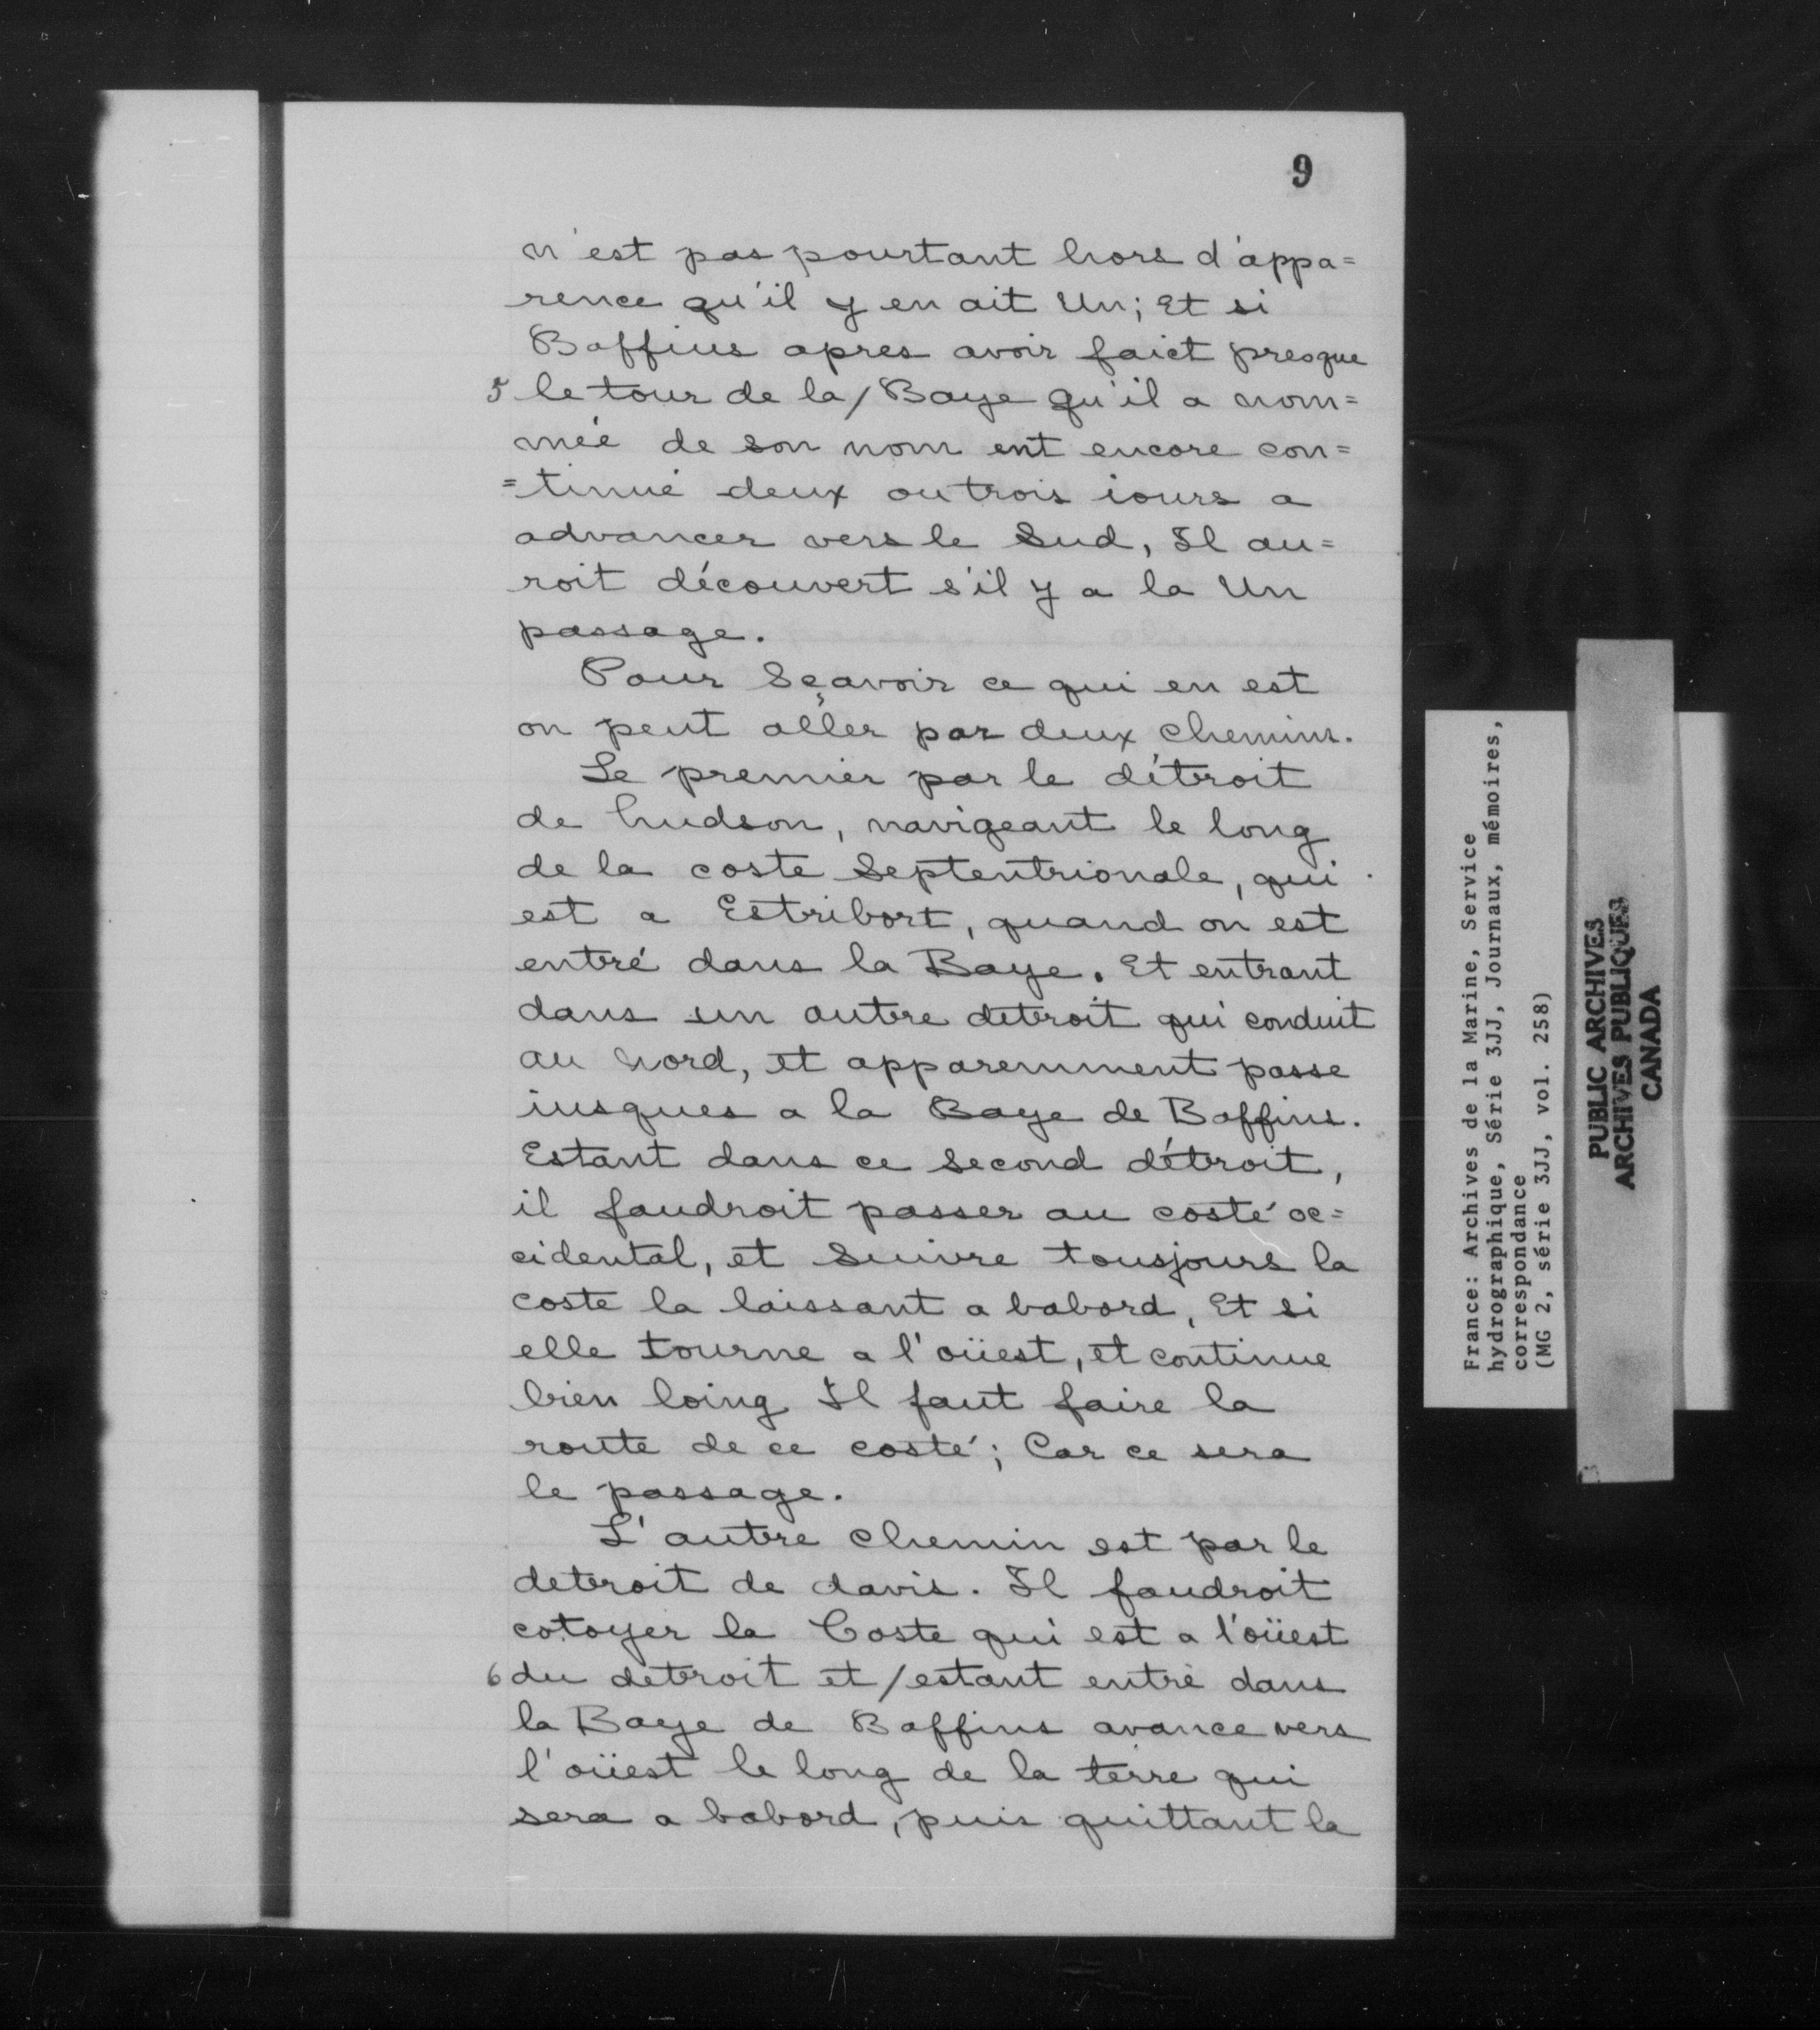 9
n'est pas pourtant hors d'appa=
rence qu'il y en ait Un; Et si
Baffins apres avoir faict presque
5 le tour de la / Baye qu'il a nom=
mée de son nom ent encore con=
=tinué deux ou trois iours a
advancer vers le Sud, Il au=
roit découvert s'il y a la Un
passage.
Pour Sçavoir ce qui en est
on peut aller par deux chemins.
Le premier par le détroit
de hudson, navigeant le long
de la coste Septentrionale, qui
est a Estribort, quand on est
entré dans la Baye. Et entrant
dans un autre detroit qui conduit
au nord, et apparemment passe
iusques a la Baye de Baffins.
Estant dans ce second détroit,
il faudroit passer au costé oc=
cidental, et suivre tousjours la
coste la laissant a babord, Et si
elle tourne a l'oüest, et continue
bien loing Il faut faire la
route de ce costé; Car ce sera
le passage.
L'autre chemin est par le
detroit de davis. Il faudroit
cotoyer la Coste qui est a l'oüest
6 du détroit et / estant entré dans
la Baye de Baffins avance vers
l'oüest le long de la terre qui
sera a babord, puis quittant la
France: Archives de la Marine, Service
hydrographique, Série 3JJ, Journaux, mémoires,
correspondance
(MG 2, série 3JJ, vol. 258)
PUBLIC ARCHIVES
ARCHIVES PUBLIQUES
CANADA